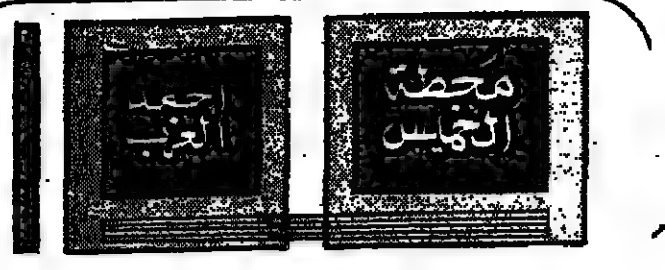 محطة
الخميس
احمد
العرب